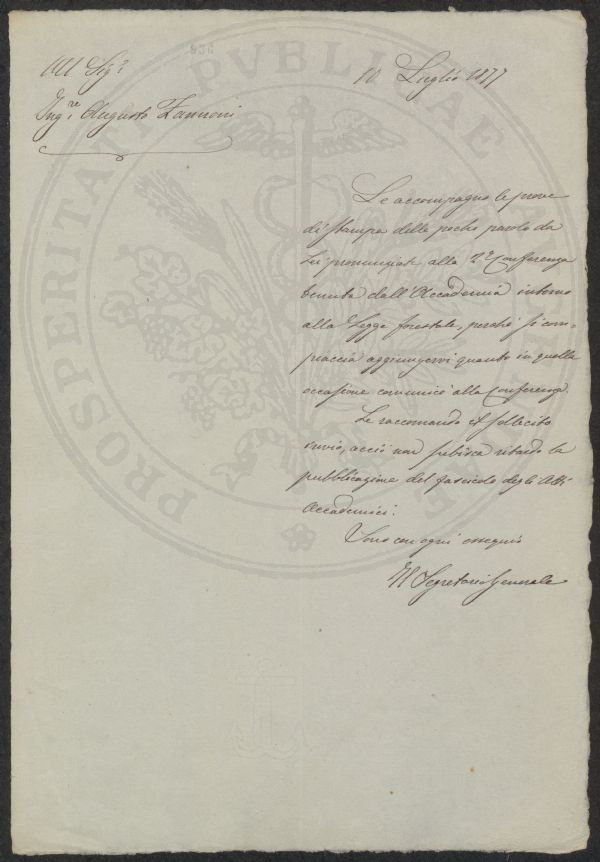 All Sigr
10 Luglio 1877
Ingre Augusto Zannoni
Le accompagno le prove
di stampa delle poche parole da
Lei pronunziate alla 2a Conferenza
tenuta dall'Accademia intorno
alla Legge forestale, perchè si com-
piaccia aggiungervi quanto in quella
occasione comunicò alla Conferenza.
Le raccomando il sollecito
invio, acciò non subisca ritardo la
pubblicazione del fascicolo degli Atti
Accademici.
Sono con ogni ossequio
Il Segretario Generale
PROSPERITATI PVBLICAE